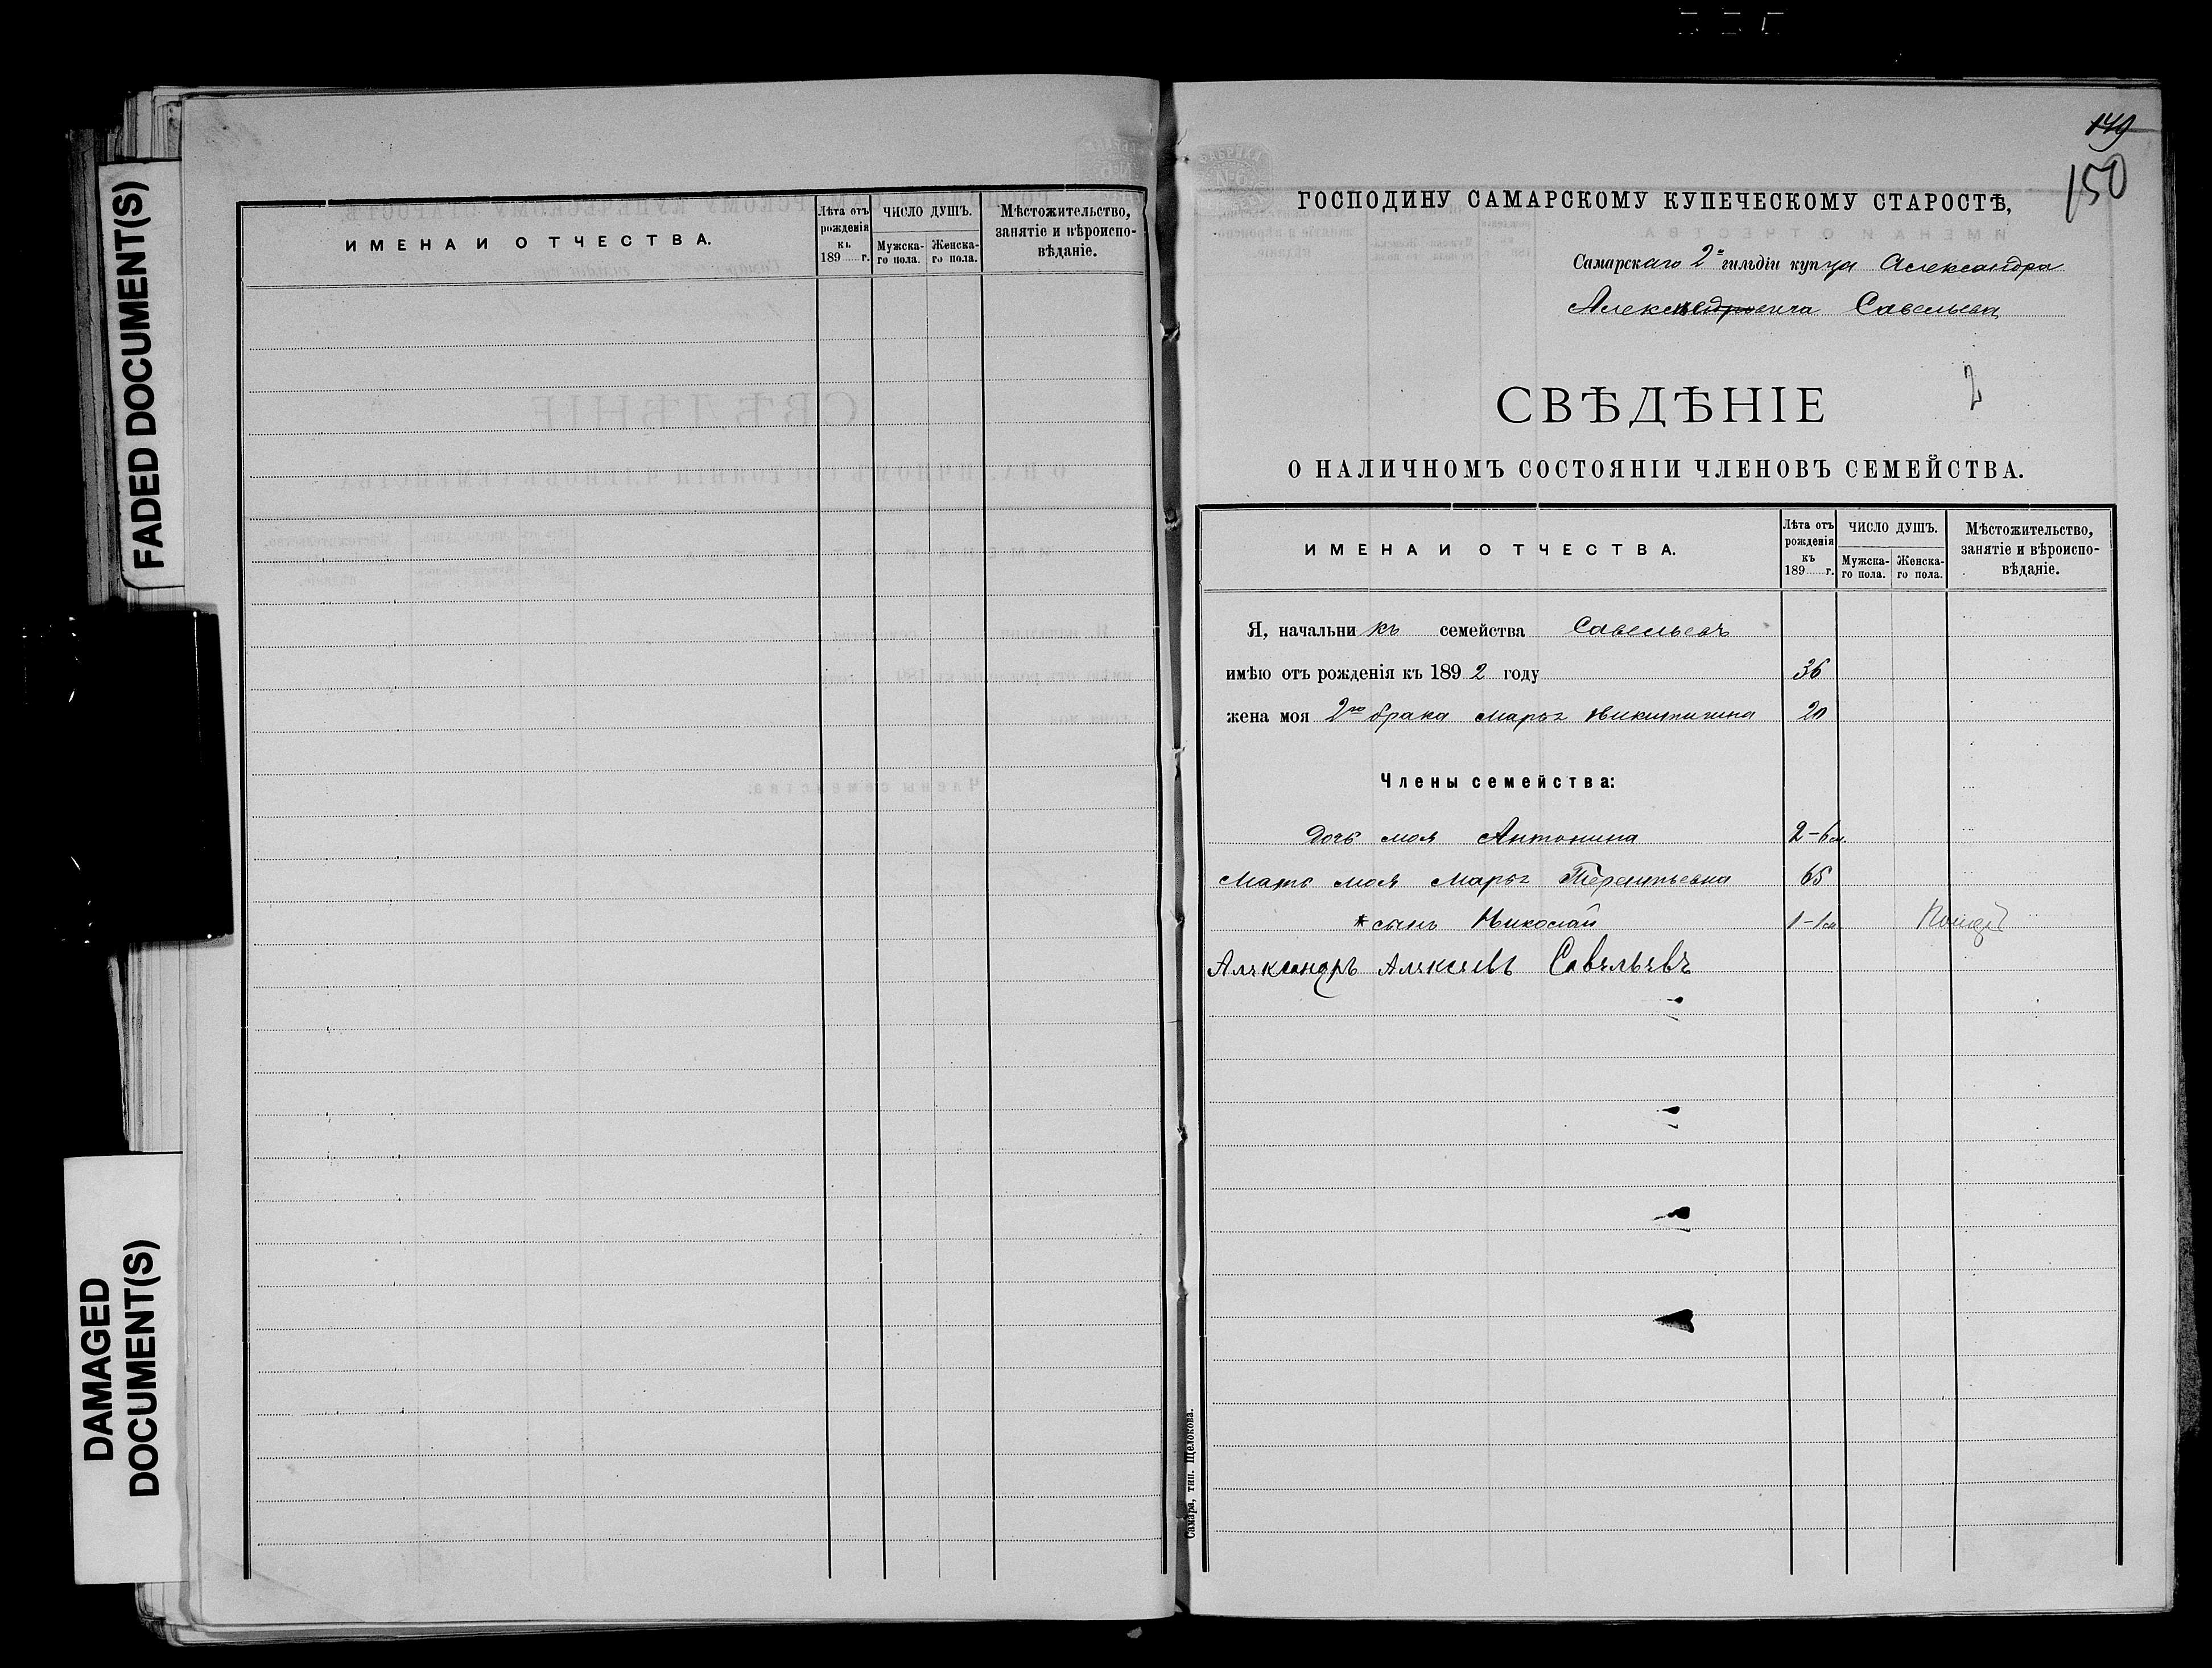 FADED DOCUMENT(S)
DAMAGED
DOCUMENT(S)
ИМЕНА И ОТЧЕСТВА.
Лѣта отъ рожденія къ 189 г.
ЧИСЛО ДУШЪ.
Мужска-го пола.
Женска-го пола.
Мѣстожительство, занятіе и вѣроиспо-вѣданіе.
149
150
ГОСПОДИНУ САМАРСКОМУ КУПЕЧЕСКОМУ СТАРОСТѢ,
Самарскаго 2й гильдіи купца Александра
Савельева
2
СВѢДѢНІЕ
О НАЛИЧНОМЪ СОСТОЯНІИ ЧЛЕНОВЪ СЕМЕЙСТВА.
ИМЕНА И ОТЧЕСТВА.
Лѣта отъ рожденія къ 189 г.
ЧИСЛО ДУШЪ.
Мужска-го пола.
Женска-го пола.
Мѣстожительство, занятіе и вѣроиспо-вѣданіе.
Я, начальникъ семейства Савельевъ
имѣю отъ рожденія къ 1892 году 36
жена моя 2го брака Марья Никитична 20
Члены семейства:
дочь моя Антонина 2-6м.
Мать моя Марья Терентьевна 65
* сынъ Николай 1-1м
Александръ Алексѣевъ Савельевъ
Самара, тип. Щелокова.